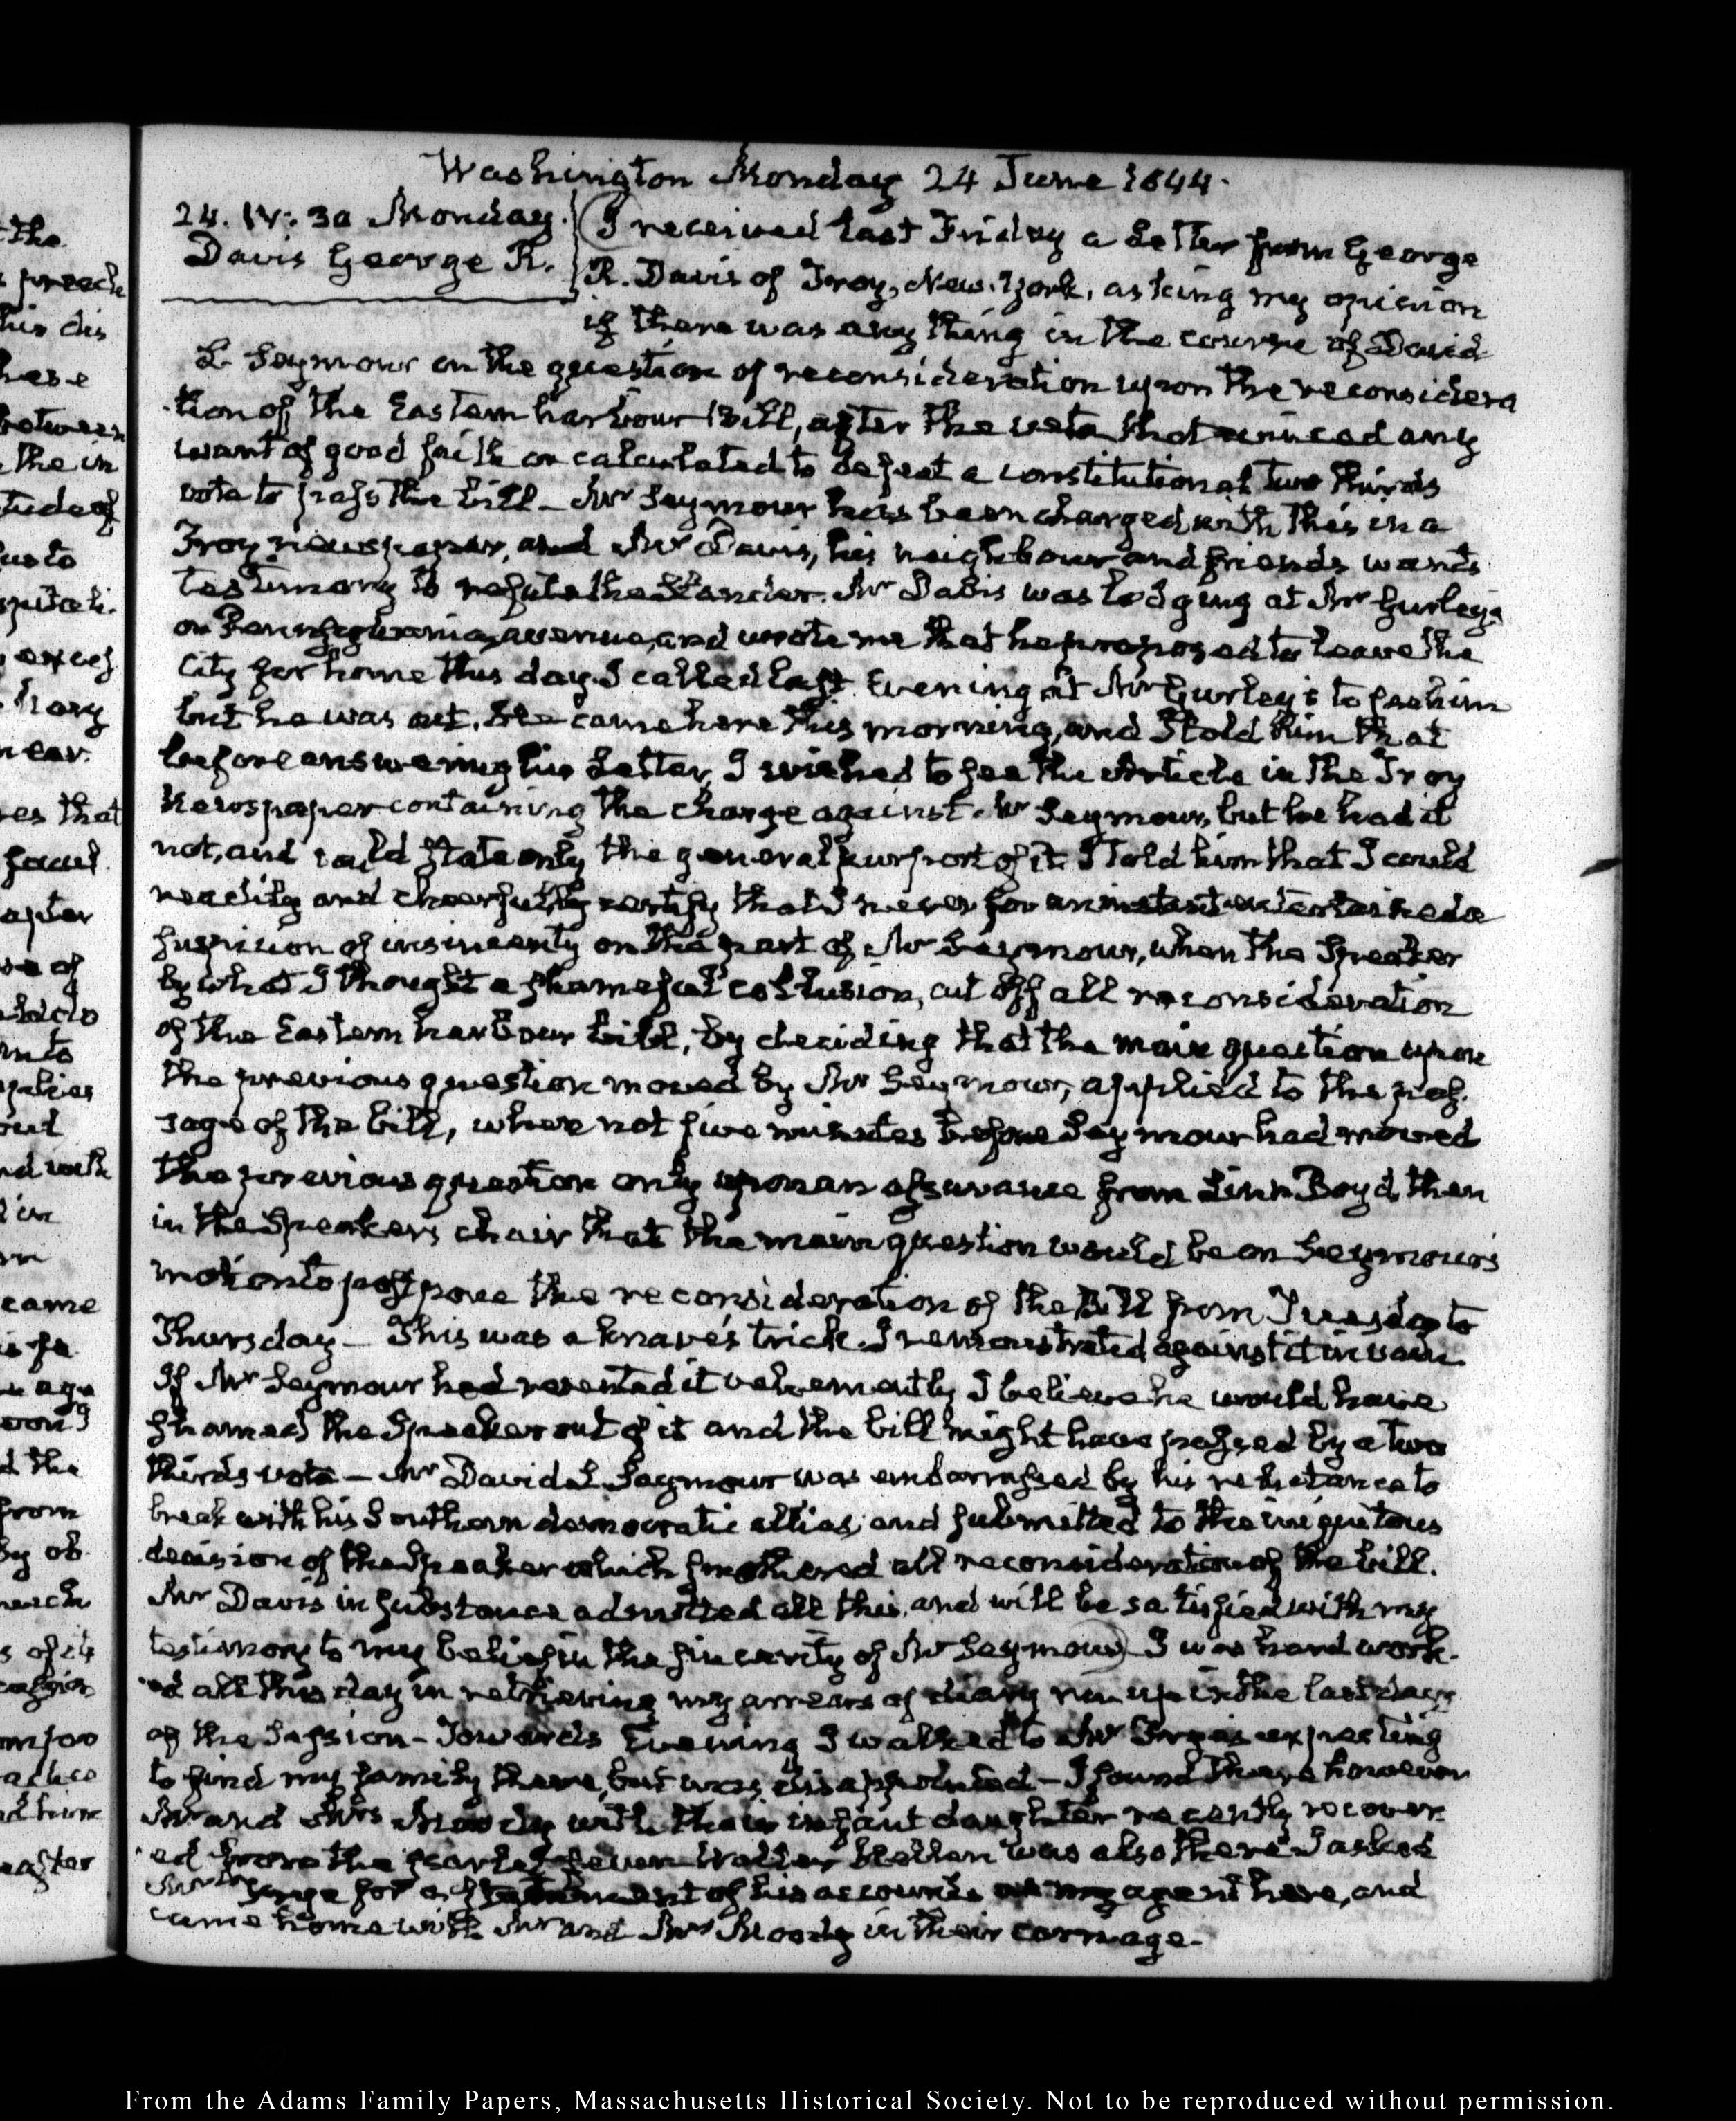 Washington Monday 24 June 1844.
24. IV: 30 Monday.
Davis George R.
I received last Friday a Letter from George
R. Davis of Troy, New-York, asking my opinion
if there was any thing in the course of David
L Seymour on the question of reconsideration upon the reconsidera
tion of the Eastern harbour Bill, after the veto that evinced any
want of good faith or calculated to defeat a constitutional two thirds
vote to pass the bill – Mr Seymour has been charged with this in a
Troy newspaper, and Mr Davis, his neighbour and friends wants
testimony to refute the slander. Mr Davis was lodging at Mr Gurley's
on Pennsylvania avenue, and wrote me that he proposed to leave the
City for home this day. I called last Evening at Mr Gurley's to see him
but he was out. He came here this morning, and I told him that
before answering his Letter, I wished to see the Article in the Troy
Newspaper containing the charge against Mr Seymour, but he had it
not, and could state only the general purport of it. I told him that I could
readily and cheerfully certify that I never for an instant entertained a
suspicion of insincerity on the part of Mr Seymour, when the Speaker
by what I thought a shameful collusion, cut off all reconsideration
of the Eastern harbour bill, by deciding that the main question upon
the previous question moved by Mr Seymour, applied to the pas-
sage of the bill, when not five minutes before Seymour had moved
the previous question only upon an assurance from Linn Boyd, then
in the Speakers chair that the main question would be on Seymour's
motion to postpone the reconsideration of the Bill from Tuesday to
Thursday – This was a knave's trick. I remonstrated against it in vain.
If Mr Seymour had resented it vehemently I believe he would have
shamed the Speaker out of it and the bill might have passed by a two
thirds vote – Mr David L Seymour was embarrassed by his reluctance to
break with his Southern democratic allies, and submitted to the iniquitous
decision of the Speaker which smothered all reconsideration of the bill.
Mr Davis in substance admitted all this, and will be satisfied with my
testimony to my belief in the sincerity of Mr Seymour) I was hard work-
ed all this day in retrieving my arrears of diary run up in the last days
of the Session – Towards Evening I walked to Mr Frye's expecting
to find my family there, but was disappointed – I found there however
Mr and Mrs Moody with their infant daughter recently recover-
ed from the scarlet fever Walter Hellen was also there I asked
Mr Frye for a statement of his accounts as my agent here, and
came home with Mr and Mrs Moody in their carriage.
From the Adams Family Papers, Massachusetts Historical Society. Not to be reproduced without permission.